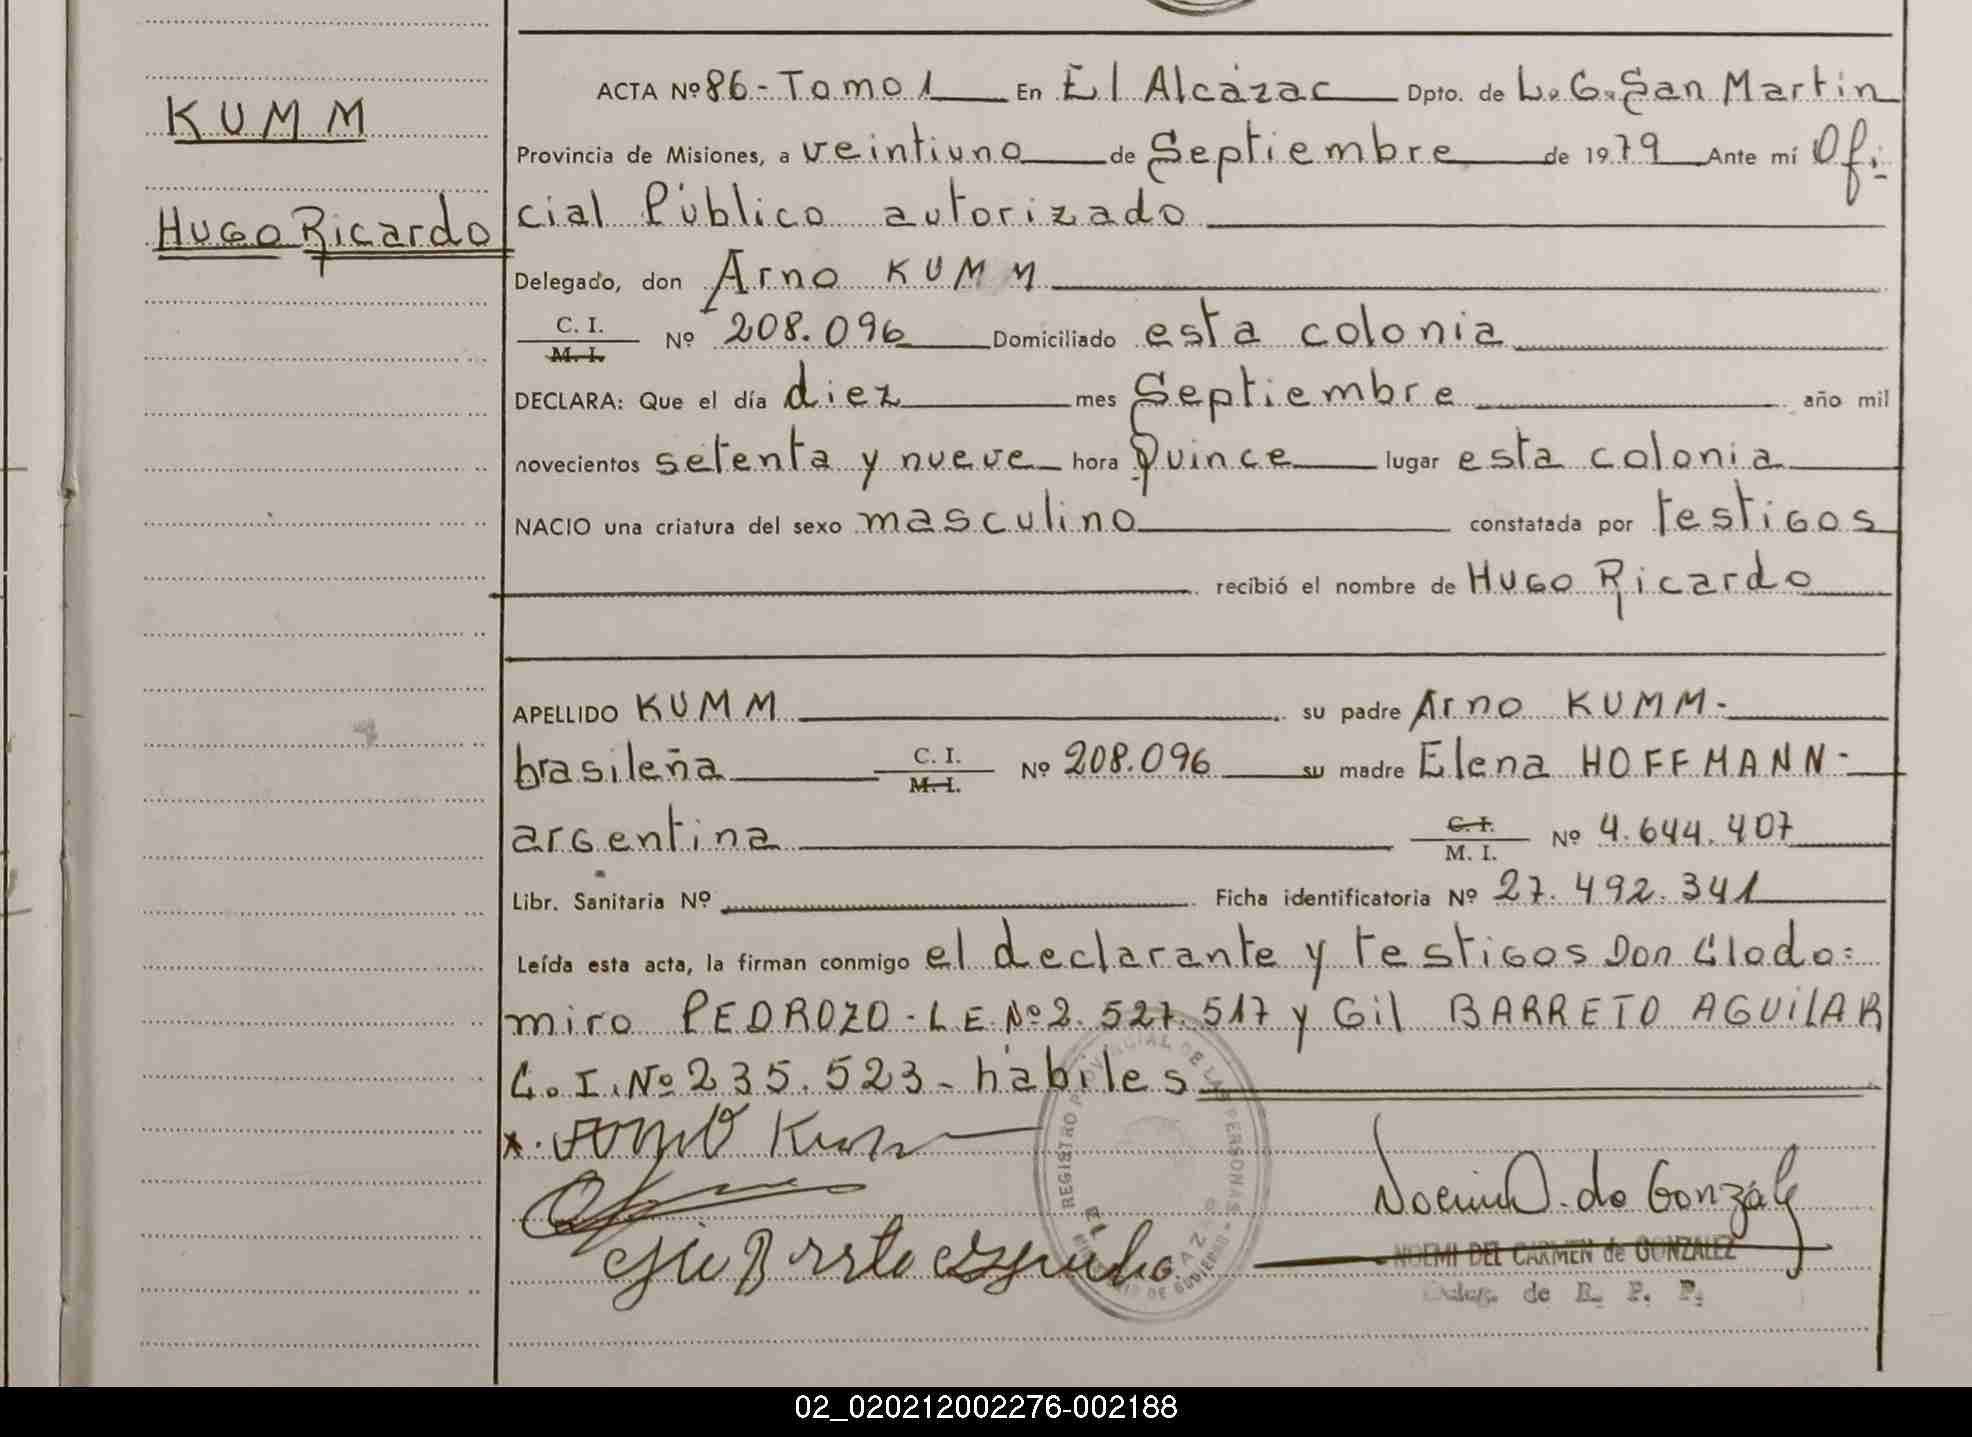 KUMM
Hugo Ricardo
ACTA Nº 86-Tomo 1 En El Alcázar Dpto. de L.G.San Martin
Provincia de Misiones, a veintiuno de Septiembre de 1979 Ante mí Ofi-
cial Público autorizado
Delegado, don Arno KUMM
C. I.
M. I.
Nº 208.096 Domiciliado esta colonia
DECLARA: Que el día diez mes Septiembre año mil
novecientos setenta y nueve hora Quince lugar esta colonia
NACIO una criatura del sexo masculino constatada por testigos
recibió el nombre de Hugo Ricardo
APELLIDO KUMM su padre Arno KUMM-
brasileña C. I. Nº 208.096 su madre Elena HOFFMANN-
M. I.
argentina C. I. Nº 4.644.407
M. I.
Libr. Sanitaria Nº Ficha identificatoria Nº 27.492.341
Leída esta acta, la firman conmigo el declarante y testigos Don Clodo=
miro PEDROZO-L E.Nº2.527.517 y Gil BARRETO AGUILAR
C.I.Nº235.523-hábiles
REGISTRO PROVINCIAL DE LAS PERSONAS
NOEMI DEL CARMEN de GONZALEZ
de R. P. P.
02_020212002276-002188